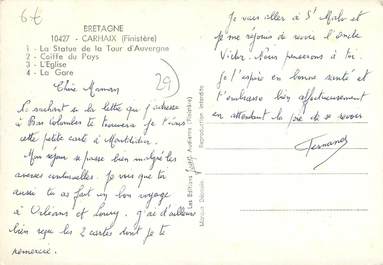 6€
BRETAGNE
10427 - CARHAIX (Finistère)
1 - La Statue de la Tour d'Auvergne
2 - Coiffe du Pays
3 - L'Eglise
4 - La Gare
29
Chère Maman
Ne sachant si la lettre que j'adresse
à Bois Colombes te trouvera je t'envoie
cette petite carte à Montdidier.
Mon séjour se passe bien malgré les
averses continuelles. Je vois que toi
aussi tu as fait un bon voyage
à Orléans et Loury. J'ai d'ailleurs
bien reçu les 2 cartes dont je te
remercie.
Les Editions d'Art Audierne (Finistère)
Marque Déposée
Reproduction interdite
Je vais aller à St Malo et
me réjouis de revoir l'oncle
Victor. Nous penserons à toi.
Je t'espère en bonne santé et
t'embrasse bien affectueusement
en attendant la joie de se revoir
Fernande